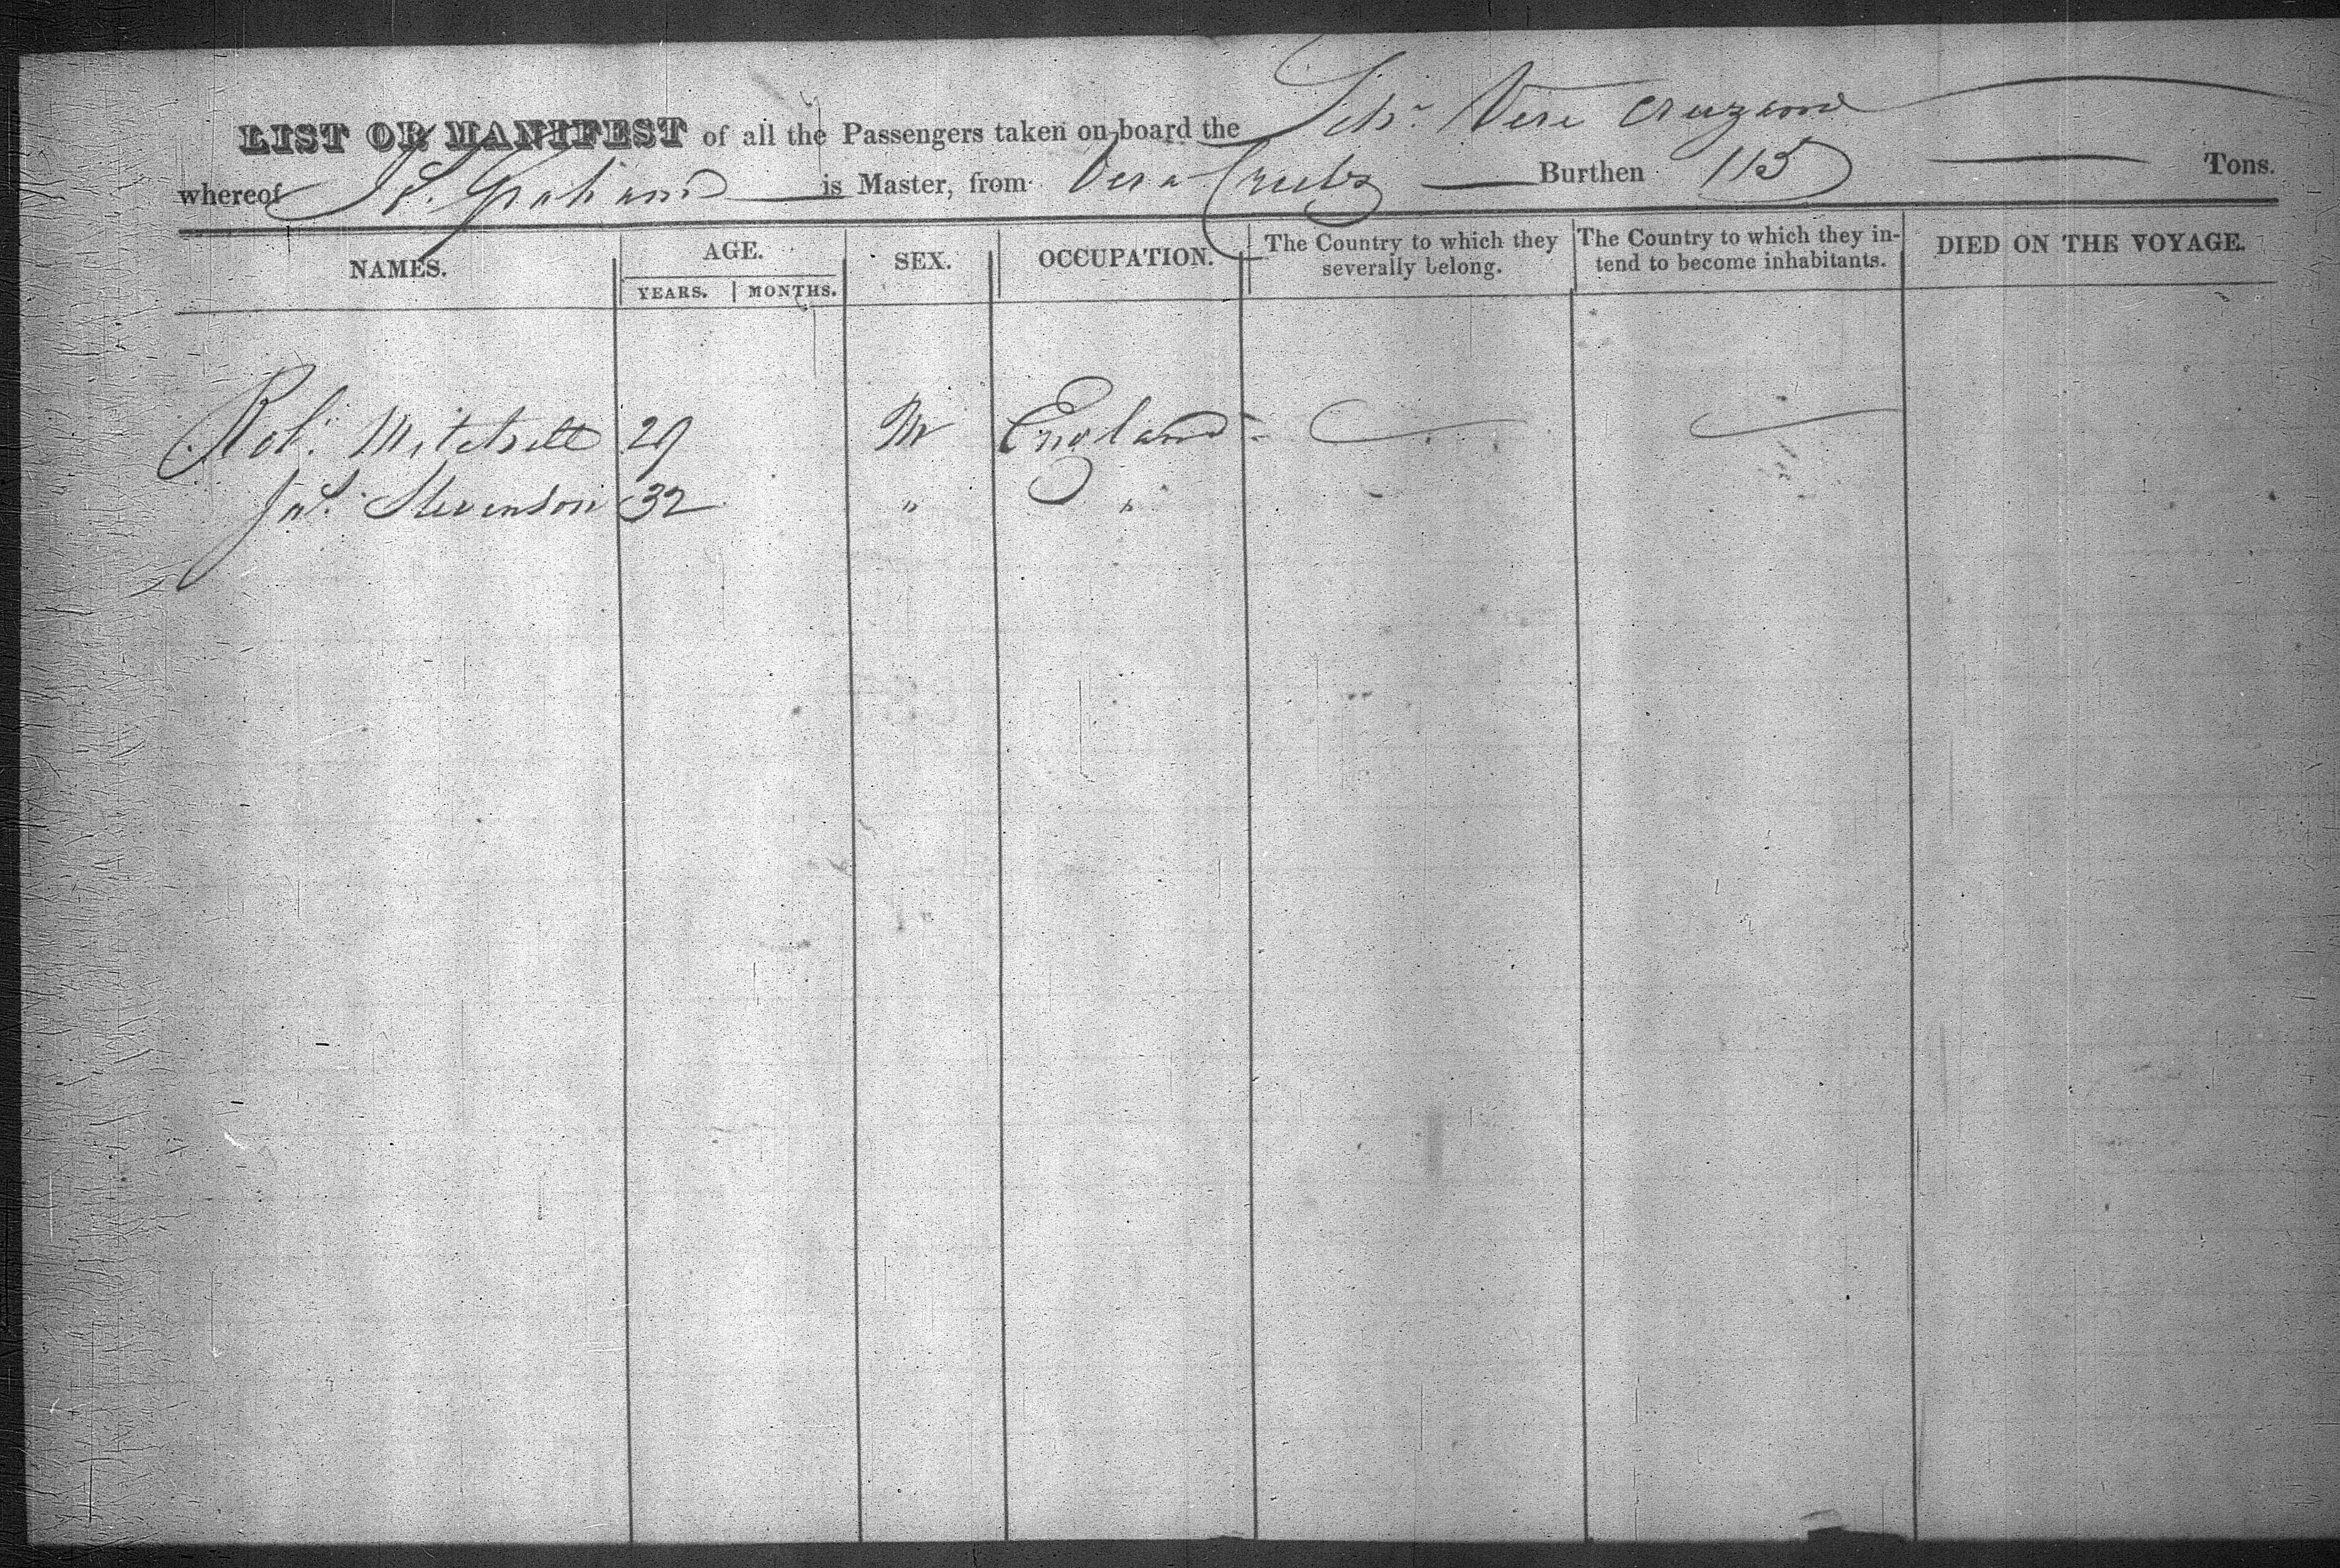 LIST OR MANIFEST of all the Passengers taken on board the Schr Vera Cruzana
whereof Graham is Master, from Vera Cruz Burthen 115 Tons.
NAMES. AGE. SEX. OCCUPATION. The Country to which they severally belong. The Country to which they intend to become inhabitants. DIED ON THE VOYAGE.
YEARS. MONTHS.
Rob. Mitchell 29 M England
Jno. Stevenson 32 " "